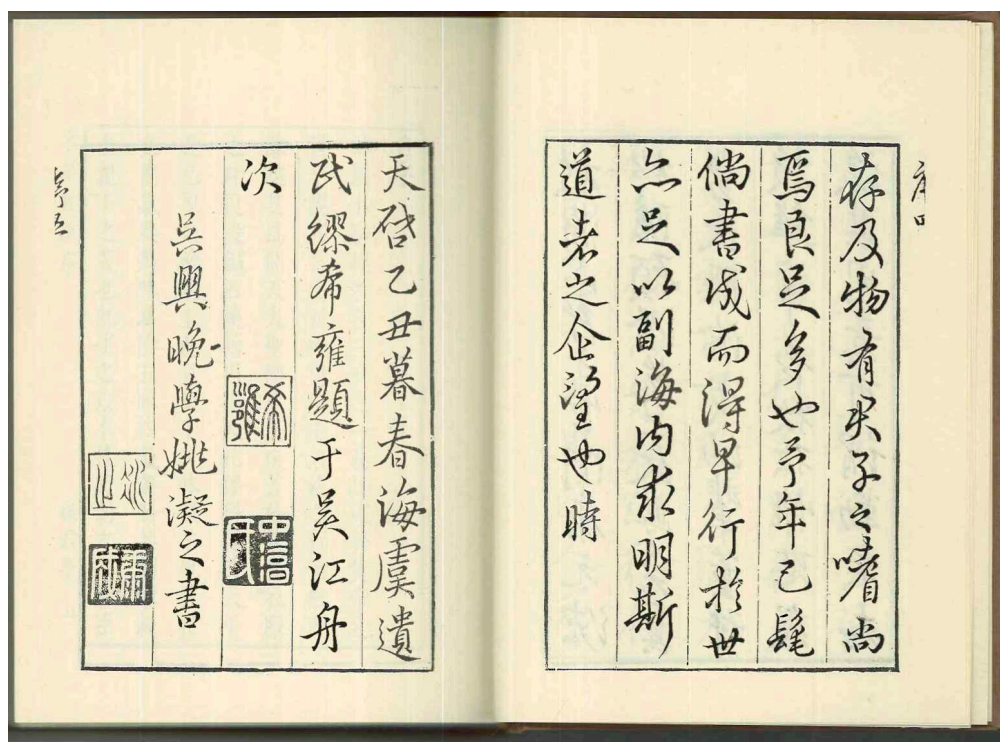 序四
存及物有是子之嗜尚
焉良足多也予年已髦
倘書成而得早行於世
亦足以副海内求明斯
道者之企望也時
天啓乙丑暮春海虞遺
民繆希雍題于吴江舟
次
吴興晚學姚凝之書
希雍
中湻
氏
凝之
序五